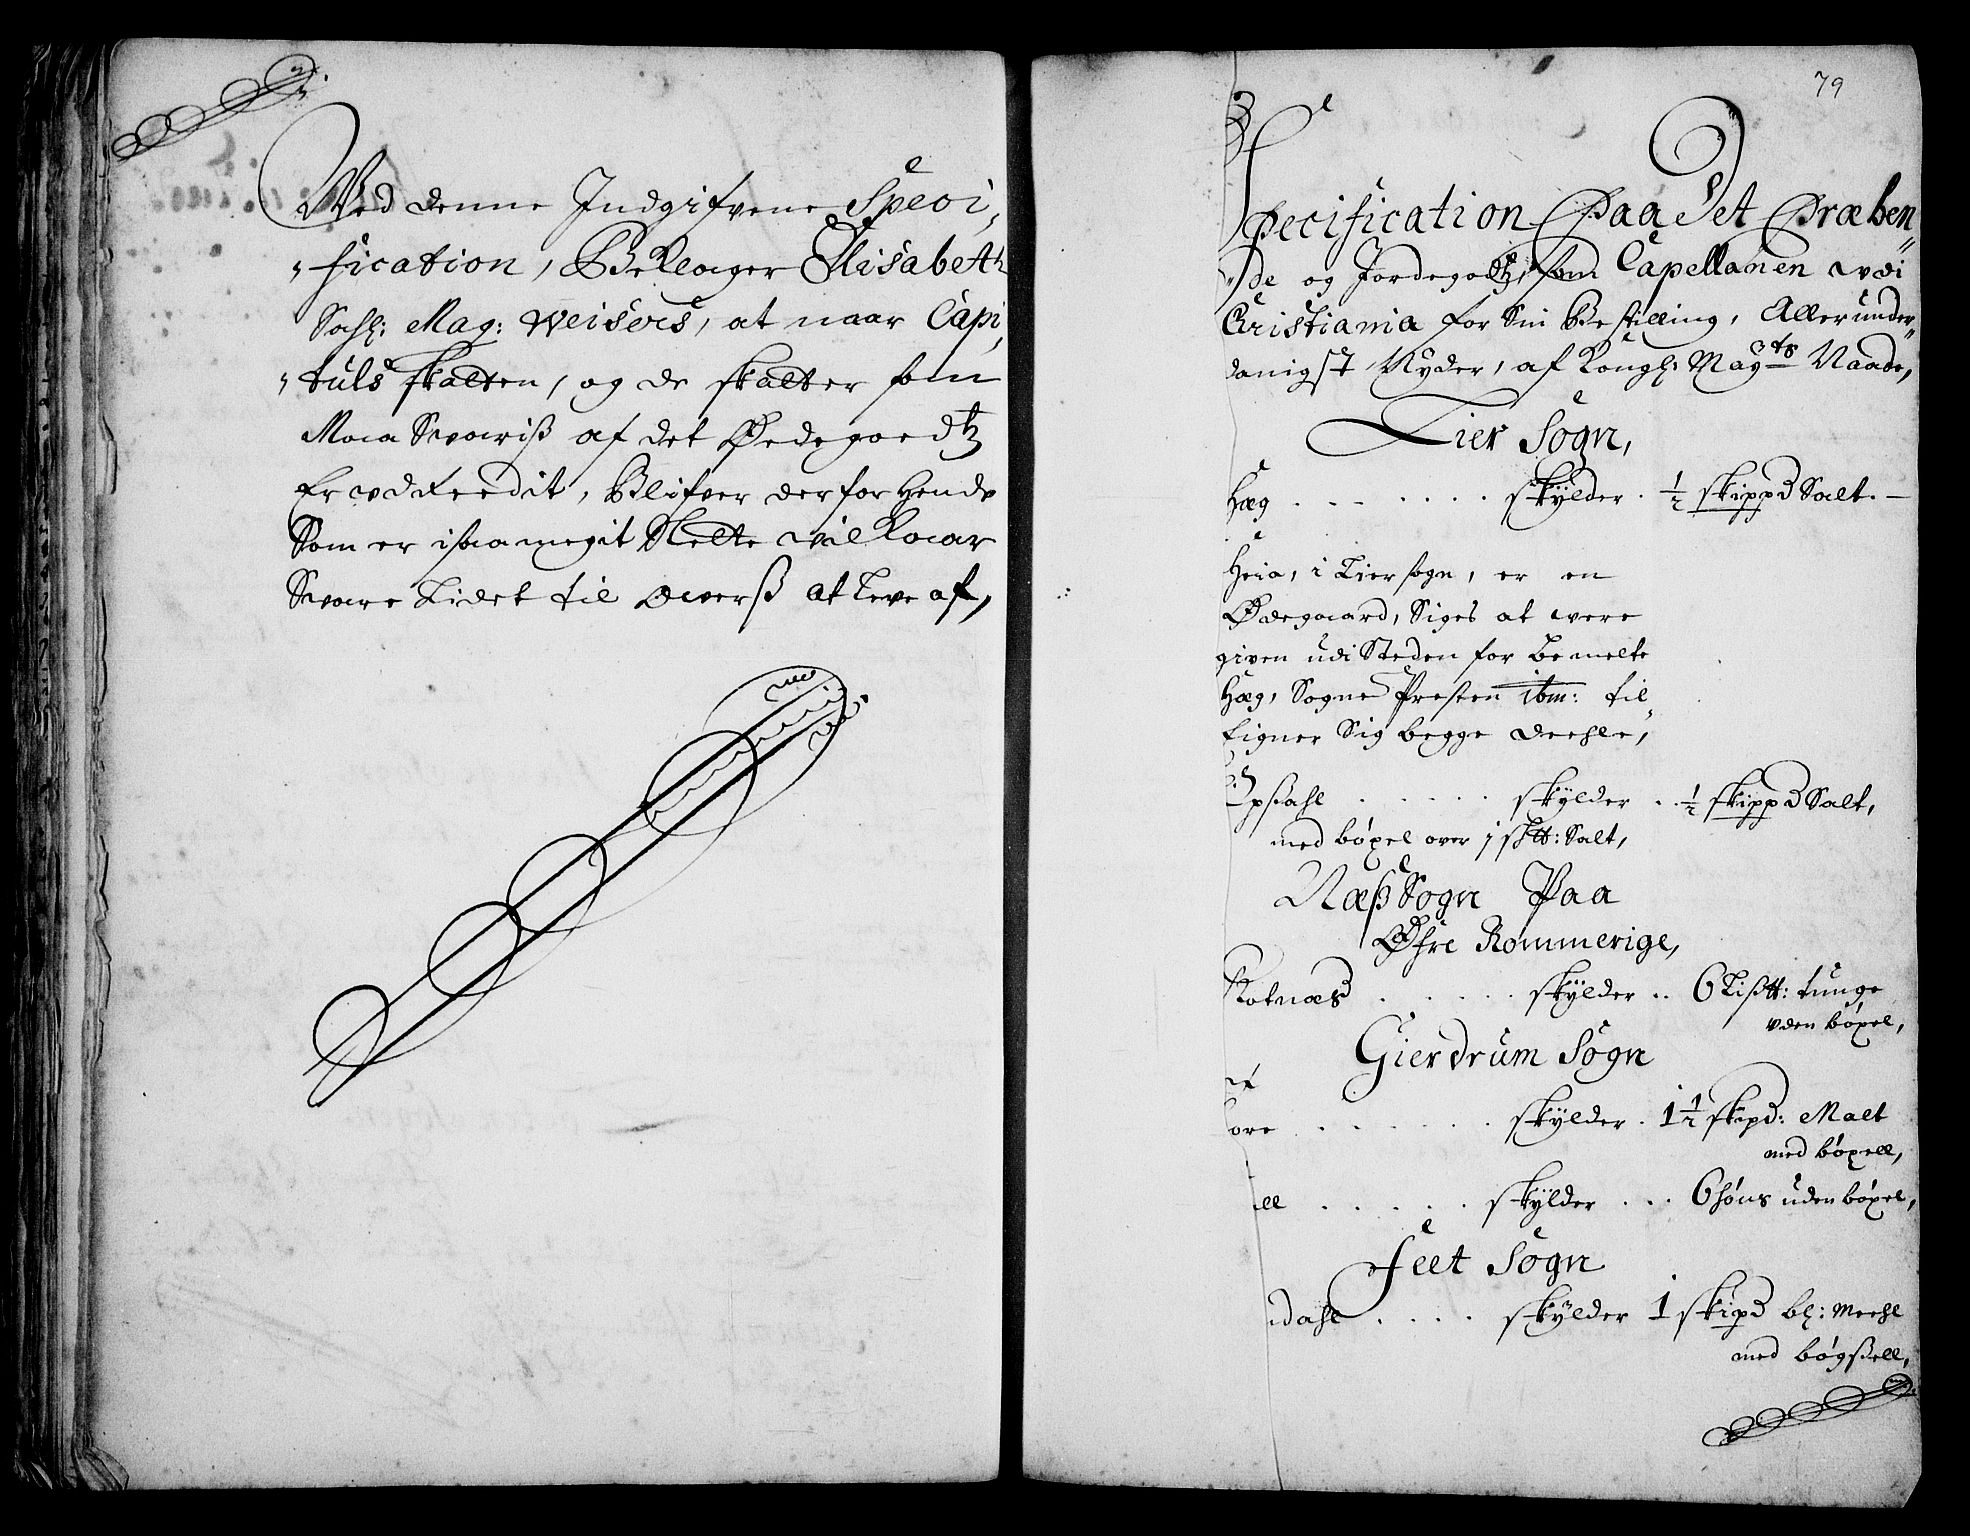 Ved denne Indgifvene Speci,
„fication, Beklager Elisabeth
Sahl: Mag: Weisers, at naar Capi,
„tuls skatten, og de skatter som
Maa Svaris af det Ødegoedtz
Er vdreedit, Blifver derfor hende
Som er i saa megit Slette vilkaar
Svare Lidet til Overs at leve af,
79
Specification Paa det Præben
„de og Jordegodtz, som Capellanen vdi
Christiania for Sin Bestilling, Allerunder„
danigst Nyder, af Kongl: May^ts Naade,
Lier Sogn,
Hæg . . . . . . skylder . ½ skippd Salt. —
Heia, i Lier sogn, er en
Ødegaard, Siges at were
given udi Steden for bemelte
Hæg, Sogne Presten ibm: til„
Eigner Sig begge deehle,
Opsahl . . . . . skylder . . ½ skippd Salt,
med bøxel over 1 sk℔: Salt,
Næss Sogn Paa
Øfre Rommerige,
Rotnæs . . . . . skylder . . 6 Lis℔: tunge
vden bøxel,
Gierdrum Sogn
ore . . . . . . skylder . 1½ skipd: Malt
med bøxell,
ell . . . . . skylder . . . 6 høns uden bøxel,
Feet Sogn
dahl . . . . skylder 1 skipd bl: Meehl
med bøgsell,